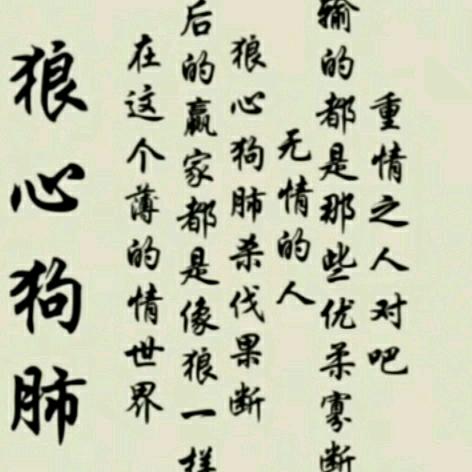 狼心狗肺
在这个薄的情世界
后的赢家都是像狼一样
狼心狗肺杀伐果断
无情的人
输的都是那些优柔寡断
重情之人对吧